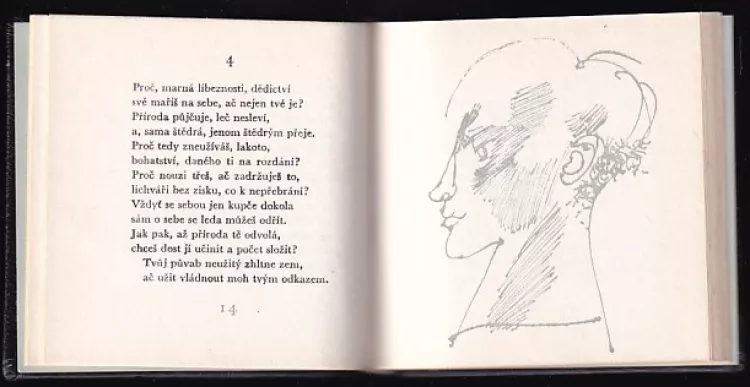 4
Proč, marná líbeznosti, dědictví
své maříš na sebe, ač nejen tvé je?
Příroda půjčuje, leč nesleví,
a, sama štědrá, jenom štědrým přeje.
Proč tedy zneužíváš, lakoto,
bohatství, daného ti na rozdání?
Proč nouzi třeš, ač zadržuješ to,
lichváři bez zisku, co k nepřebrání?
Vždyť se sebou jen kupče dokola
sám o sebe se leda můžeš odřít.
Jak pak, až příroda tě odvolá,
chceš dost jí učinit a počet složit?
Tvůj půvab neužitý zhltne zem,
ač užit vládnout moh tvým odkazem.
14